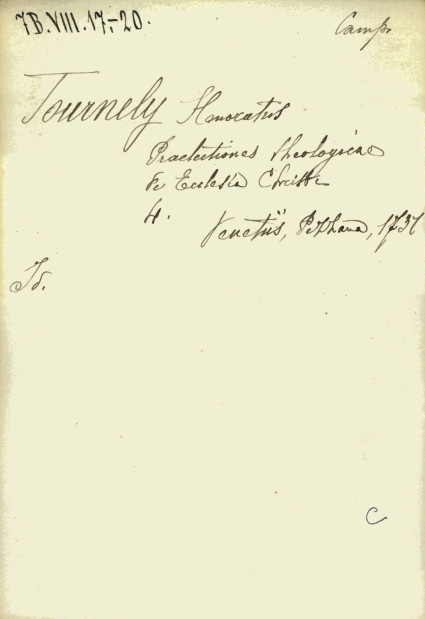 7B.VIII.17-20.
Camp.
Tournely Honoratus
Praelectiones theologicae
de Ecclesia Christi
4.
Venetiis, Pezzana, 1731
Id.
C